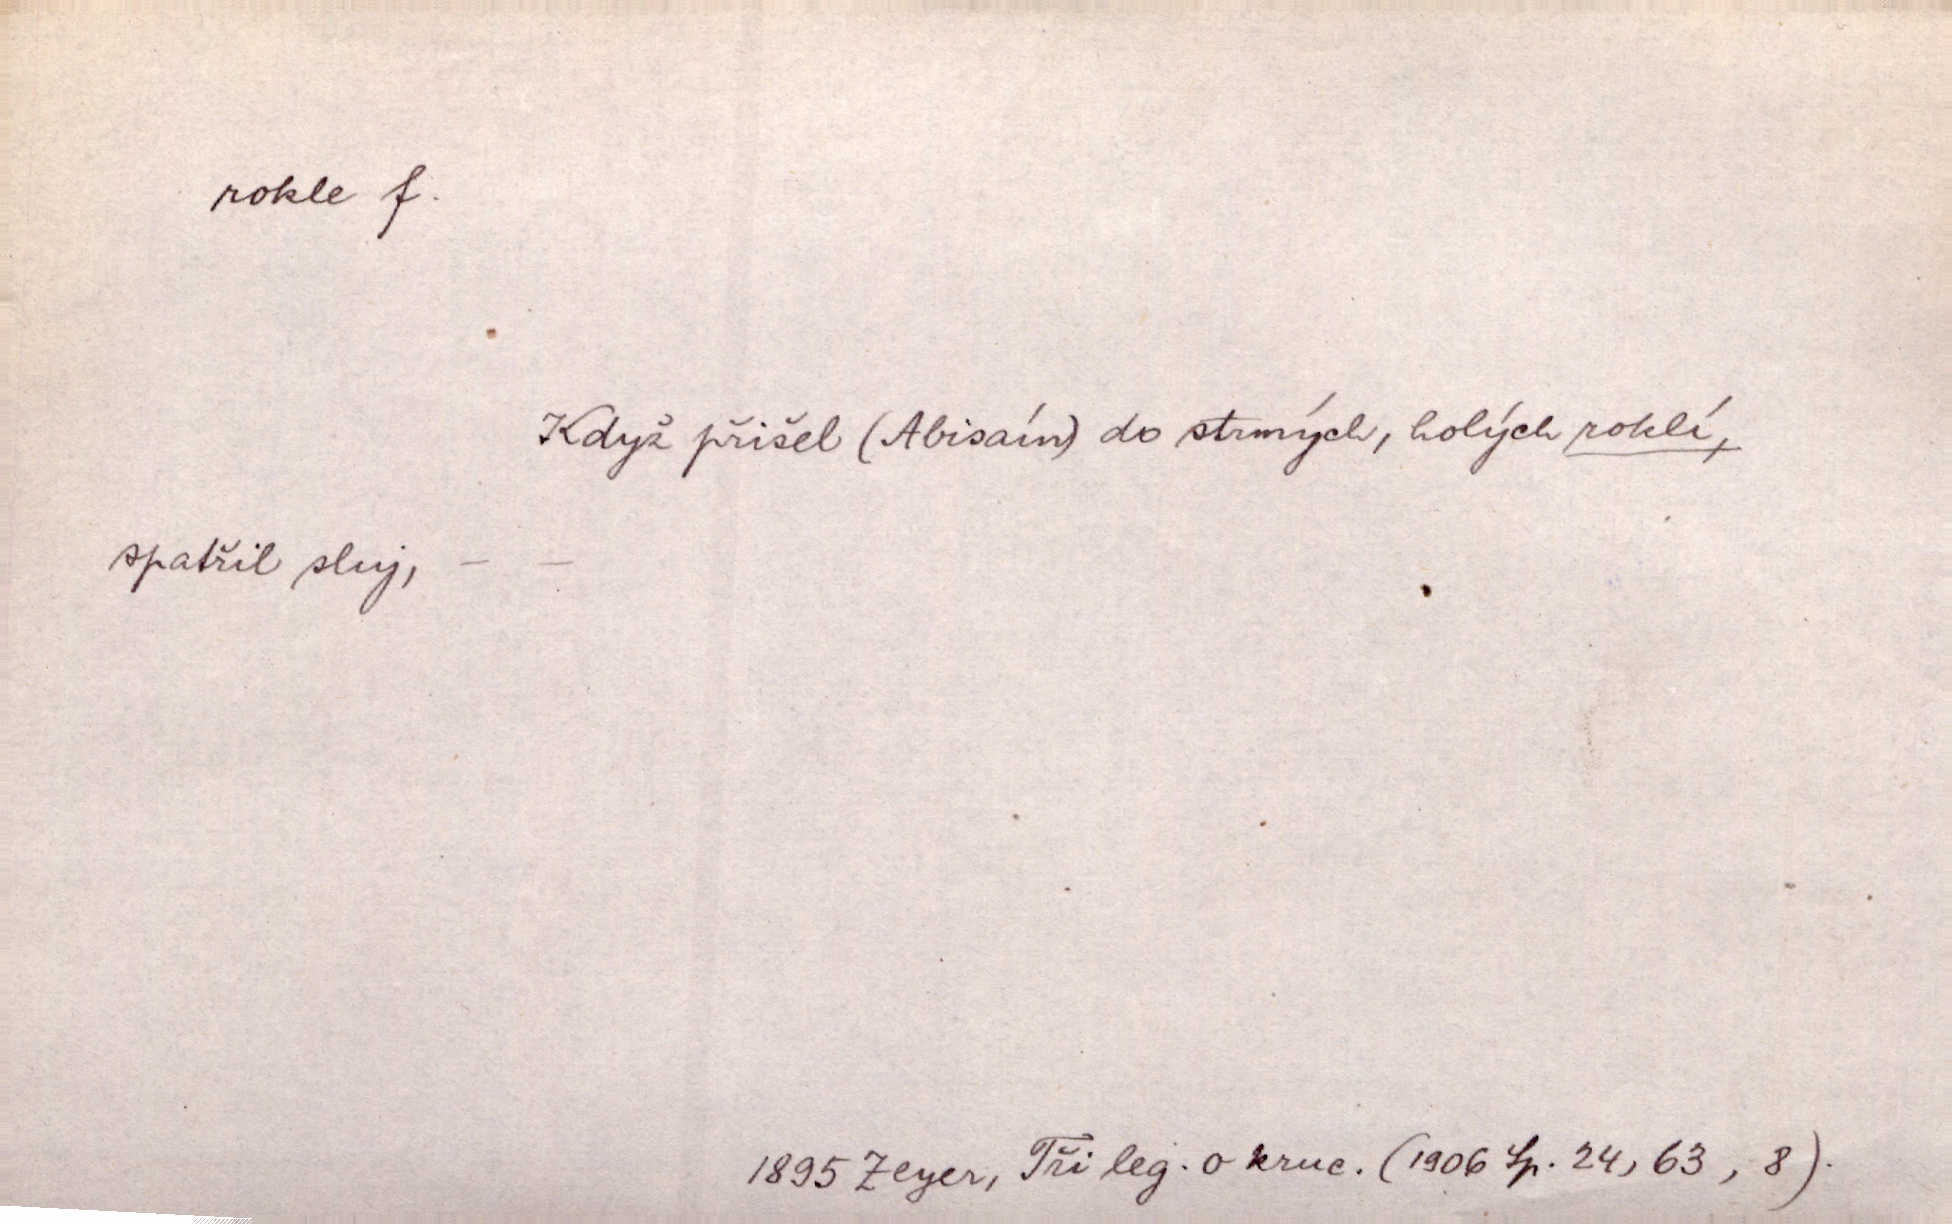 rokle f.
Když přišel (Abisaín) do strmých, holých roklí,
spatřil sluj, – –
1895 Zeyer, Tři leg. o kruc. (1906 Sp. 24, 63, 8).